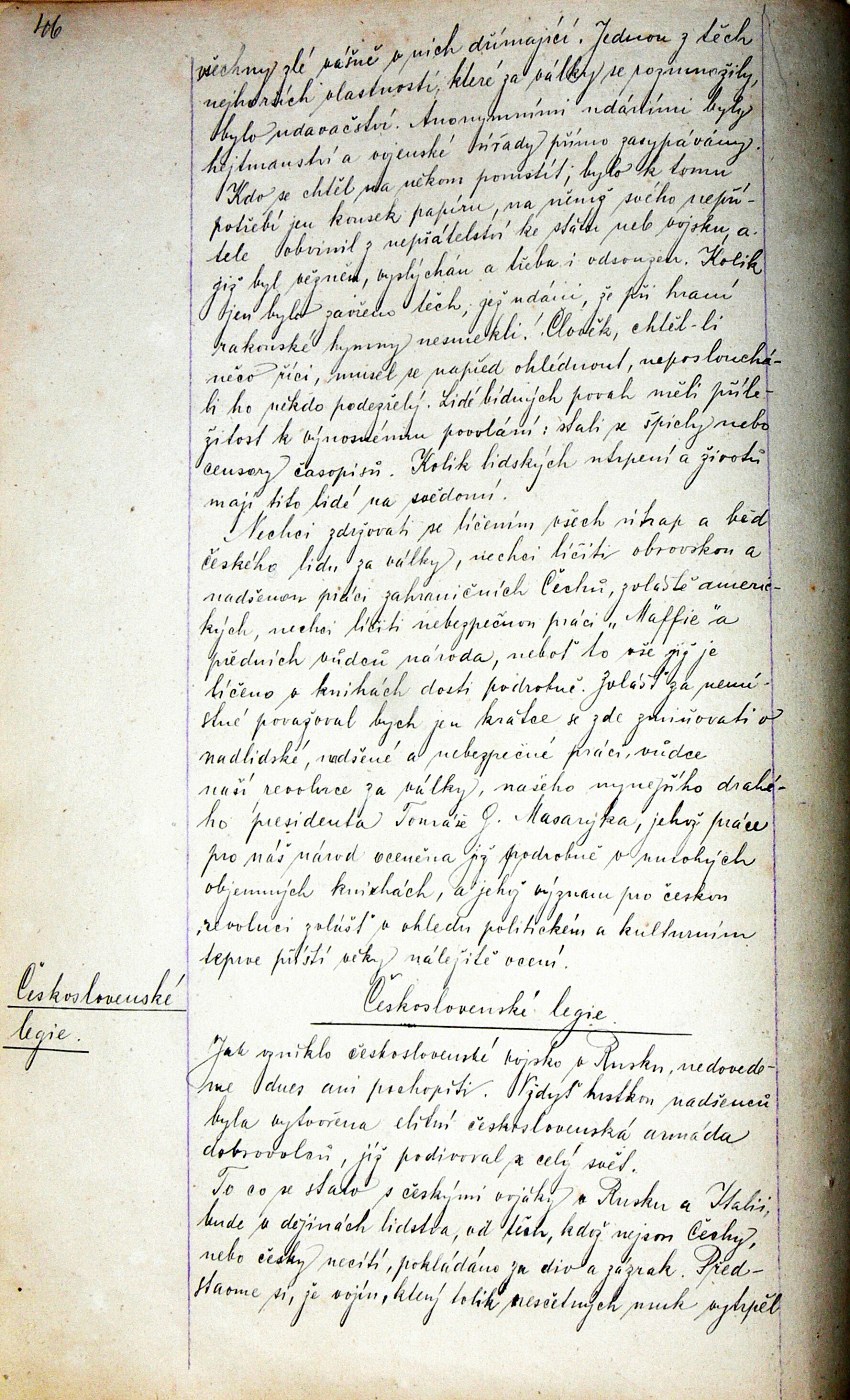 46
všechny zlé vášně v nich dřímající. Jednou z těch
nejhorších vlastností, které za války se rozmnožily,
bylo udavačství. Anonymními udáními byly
hejtmanství a vojenské úřady přímo zasypávány.
Kdo se chtěl na někom pomstít, bylo k tomu
potřebí jen kousek papíru, na němž svého nepří-
tele obvinil z nepřátelství ke státu neb vojsku, a
již byl vězněn, vyslýchán a třeba i odsouzen. Kolik
jen bylo zavřeno těch, jež udáni, že při hraní
rakouské hymny nesmekli! Člověk, chtěl-li
něco říci, musel se napřed ohlédnout, neposlouchá-
li ho někdo podezřelý. Lidé bídných povah měli příle-
žitost k výnosnému povolání: stali se špicly nebo
censory časopisů. Kolik lidských utrpení a životů
mají tito lidé na svědomí.
Nechci zdržovati se líčením všech útrap a běd
českého lidu za války, nechci líčiti obrovskou a
nadšenou práci zahraničních Čechů, zvláště americ-
kých, nechci líčiti nebezpečnou práci „Maffie" a
předních vůdců národa, neboť to vše již je
líčeno v knihách dosti podrobně. Zvlášť za nemí-
stné považoval bych jen krátce se zde zmiňovati o
nadlidské, nadšené a nebezpečné práci, vůdce
naší revoluce za války, našeho nynejšího drahé-
ho presidenta Tomáše G. Masaryka, jehož práce
pro náš národ oceněna již podrobně v mnohých
objemných knihách, a jehož význam pro českou
revoluci zvlášť v ohledu politickém a kulturním
teprve příští věky náležitě ocení.
Československé
legie.
Československé legie.
Jak vzniklo československé vojsko v Rusku, nedovede-
me dnes ani pochopiti. Vždyť hrstkou nadšenců
byla vytvořena elitní československá armáda
dobrovolců, jíž podivoval se celý svět.
To co se stalo s českými vojáky v Rusku a Italii,
bude v dějinách lidstva, od těch, kdož nejsou Čechy,
nebo česky necítí, pokládáno za div a zázrak. Před-
stavme si, že vojín, který tolik nesčetných muk vytrpěl